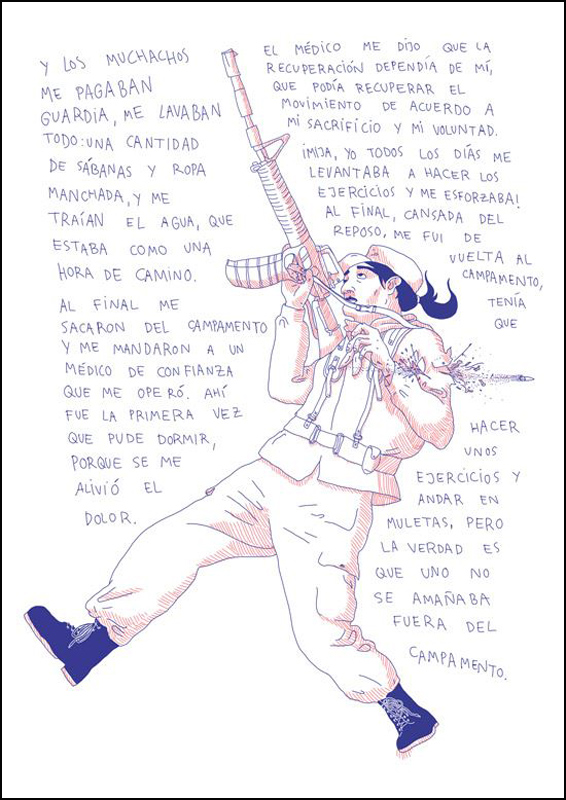 Y LOS MUCHACHOS
ME PAGABAN
GUARDIA, ME LAVABAN
TODO: UNA CANTIDAD
DE SÁBANAS Y ROPA
MANCHADA, Y ME
TRAÍAN EL AGUA, QUE
ESTABA COMO UNA
HORA DE CAMINO.
AL FINAL ME
SACARON DEL CAMPAMENTO
Y ME MANDARON A UN
MÉDICO DE CONFIANZA
QUE ME OPERÓ. AHÍ
FUE LA PRIMERA VEZ
QUE PUDE DORMIR,
PORQUE SE ME
ALIVIÓ EL
DOLOR.
EL MÉDICO ME DIJO QUE LA
RECUPERACIÓN DEPENDÍA DE MÍ,
QUE PODÍA RECUPERAR EL
MOVIMIENTO DE ACUERDO A
MI SACRIFICIO Y MI VOLUNTAD.
¡MIJA, YO TODOS LOS DÍAS ME
LEVANTABA A HACER LOS
EJERCICIOS Y ME ESFORZABA!
AL FINAL, CANSADA DEL
REPOSO, ME FUI DE
VUELTA AL
CAMPAMENTO,
TENÍA
QUE
HACER
UNOS
EJERCICIOS Y
ANDAR EN
MULETAS, PERO
LA VERDAD ES
QUE UNO NO
SE AMAÑABA
FUERA DEL
CAMPAMENTO.